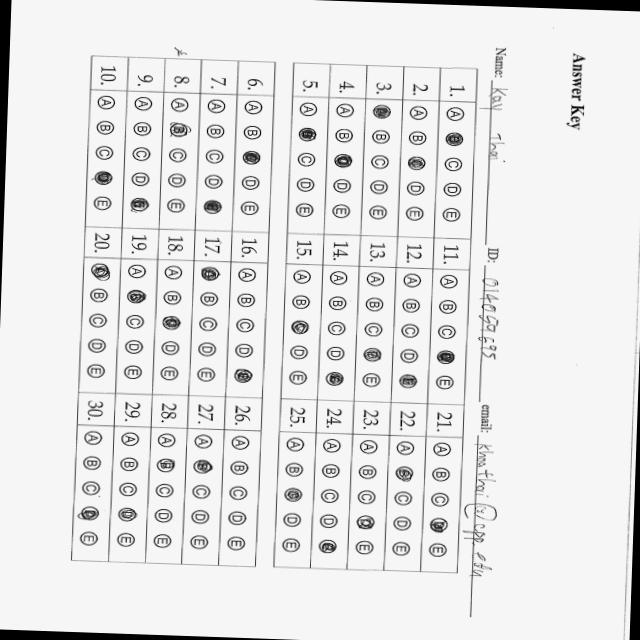 Answer Key
Name: Kay Thai ID: email:
1. A B C D E 11. A B C D E 21. A B C D E
2. A B C D E 12. A B C D E 22. A B C D E
3. A B C D E 13. A B C D E 23. A B C D E
4. A B C D E 14. A B C D E 24. A B C D E
5. A B C D E 15. A B C D E 25. A B C D E
6. A B C D E 16. A B C D E 26. A B C D E
7. A B C D E 17. A B C D E 27. A B C D E
8. A B C D E 18. A B C D E 28. A B C D E
9. A B C D E 19. A B C D E 29. A B C D E
10. A B C D E 20. A B C D E 30. A B C D E